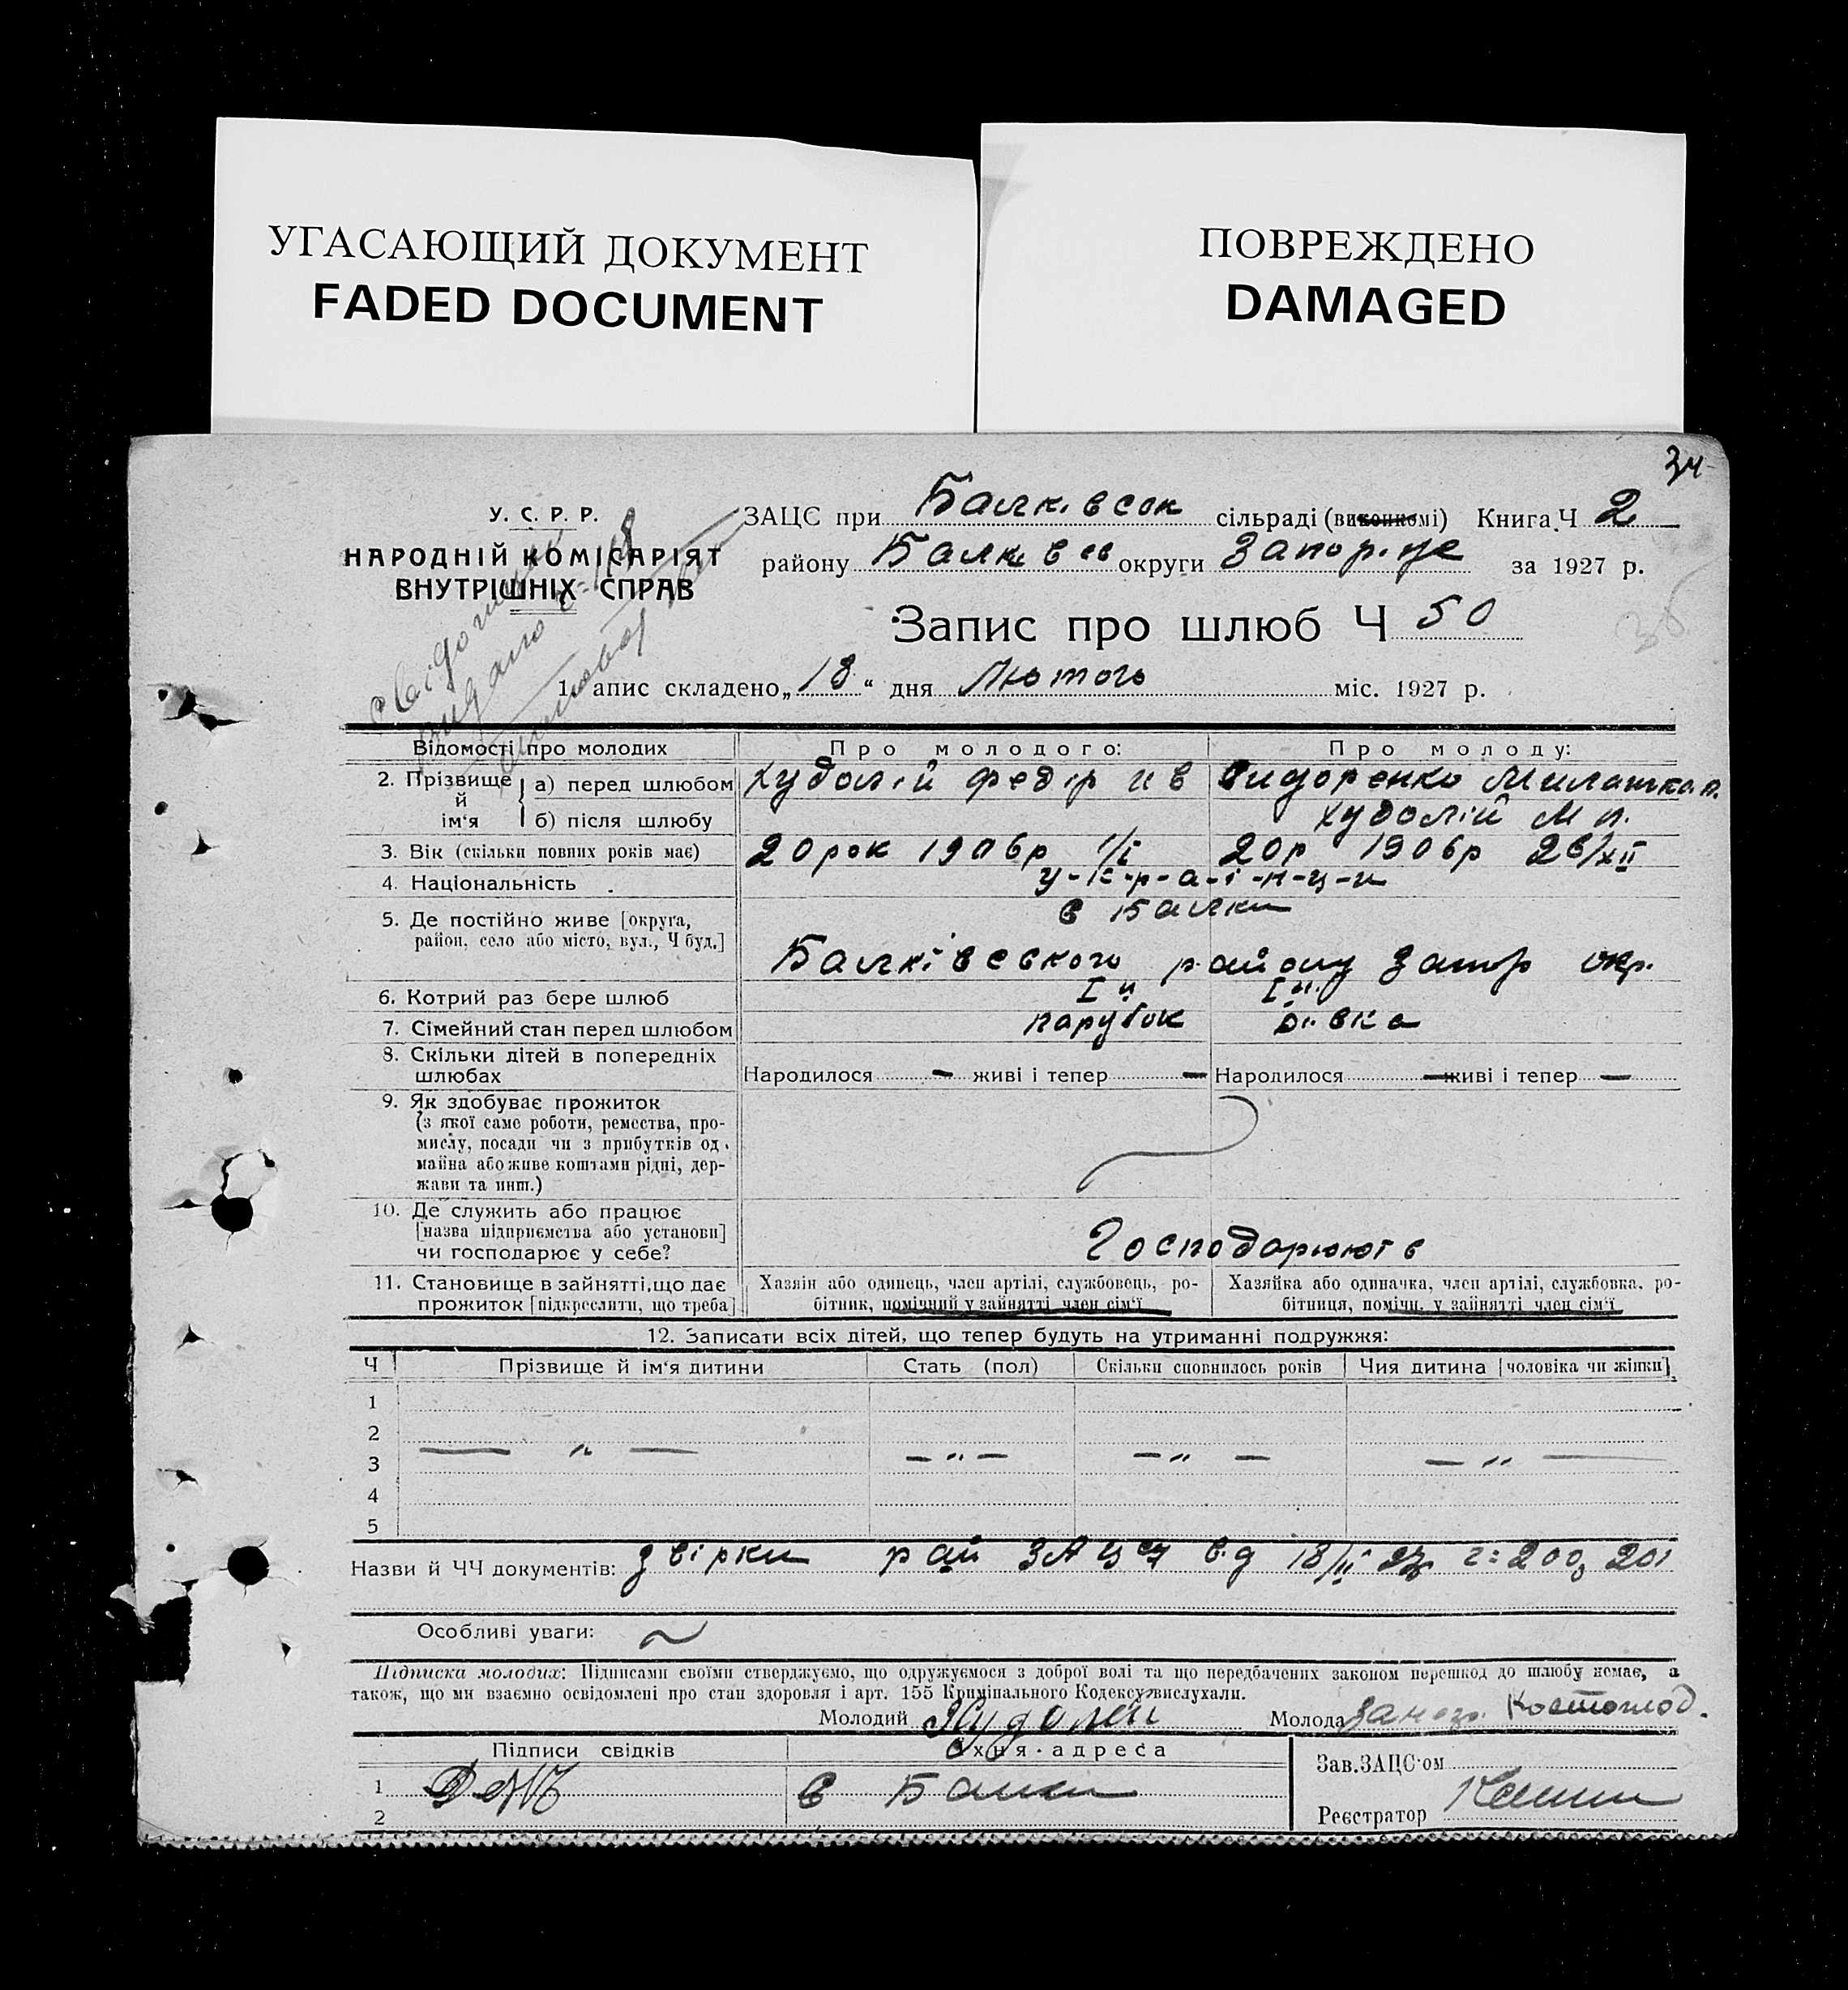 УГАСАЮЩИЙ ДОКУМЕНТ
FADED DOCUMENT
ПОВРЕЖДЕНО
DAMAGED
34
У. С. Р. Р.
НАРОДНІЙ КОМІСАРІЯТ
ВНУТРІШНІХ СПРАВ
ЗАЦС при Балківсок сільраді (виконкомі) Книга Ч 2
району Балків округи Запор. за 1927 р.
Запис про шлюб Ч 50
36
1. апис складено „18“ дня Лютого міс. 1927 р.
Відомості про молодих Про молодого: Про молоду:
2. Прізвище й ім‘я а) перед шлюбом Худолій Федір Ив Сидоренко Милашка П.
б) після шлюбу Худолій М П.
3. Вік (скільки повних років має) 20 рок 1906р 1/I 20р 1906р 28/XII
4. Національність у-к-р-а-ї-н-ц-и
5. Де постійно живе [округа, с Балки
район, село або місто, вул., Ч буд.]
Балківського району Запор окр.
6. Котрий раз бере шлюб I й I й
7. Сімейний стан перед шлюбом парубок дівка
8. Скільки дітей в попередніх
шлюбах Народилося — живі і тепер — Народилося — живі і тепер —
9. Як здобуває прожиток
(з якої саме роботи, ремества, про-
мислу, посади чи з прибутків од
майна або живе коштами рідні, дер-
жави та инш.)
10. Де служить або працює
[назва підприємства або установи]
чи господарює у себе? Господарюют в
11. Становище в зайнятті, що дає Хазяїн або одинець, член артілі, службовець, ро- Хазяйка або одиначка, член артілі, службовка, ро-
прожиток [підкреслити, що треба] бітник, помічний у зайнятті член сім‘ї бітниця, помічн. у зайнятті член сім‘ї
12. Записати всіх дітей, що тепер будуть на утриманні подружжя:
Ч Прізвище й ім‘я дитини Стать (пол) Скільки сповнилось років Чия дитина [чоловіка чи жінки]
1
2
— " — — " — — " — — " —
3
4
5
Назви й ЧЧ документів: звірки рай ЗАЦСу від 18/II 27р ч: 200, 201
Особливі уваги: ~
Підписка молодих: Підписами своїми стверджуємо, що одружуємося з доброї волі та що передбачених законом перешкод до шлюбу немає, а
також, що ми взаємно освідомлені про стан здоровля і арт. 155 Кримінального Кодексу вислухали.
Молодий Худолей Молода за негр. Костоглод.
Підписи свідків Їхня адреса
Зав. ЗАЦС‘ом
1 с Балки
Реєстратор
2